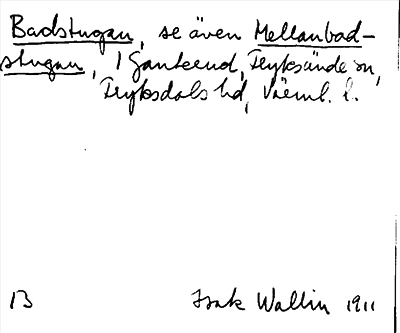 Badstugan, se även Mellanbad-
stugan, 1 Fryksände sn,
Fryksdals hd, Värml. l.
B Isak Wallin 1911